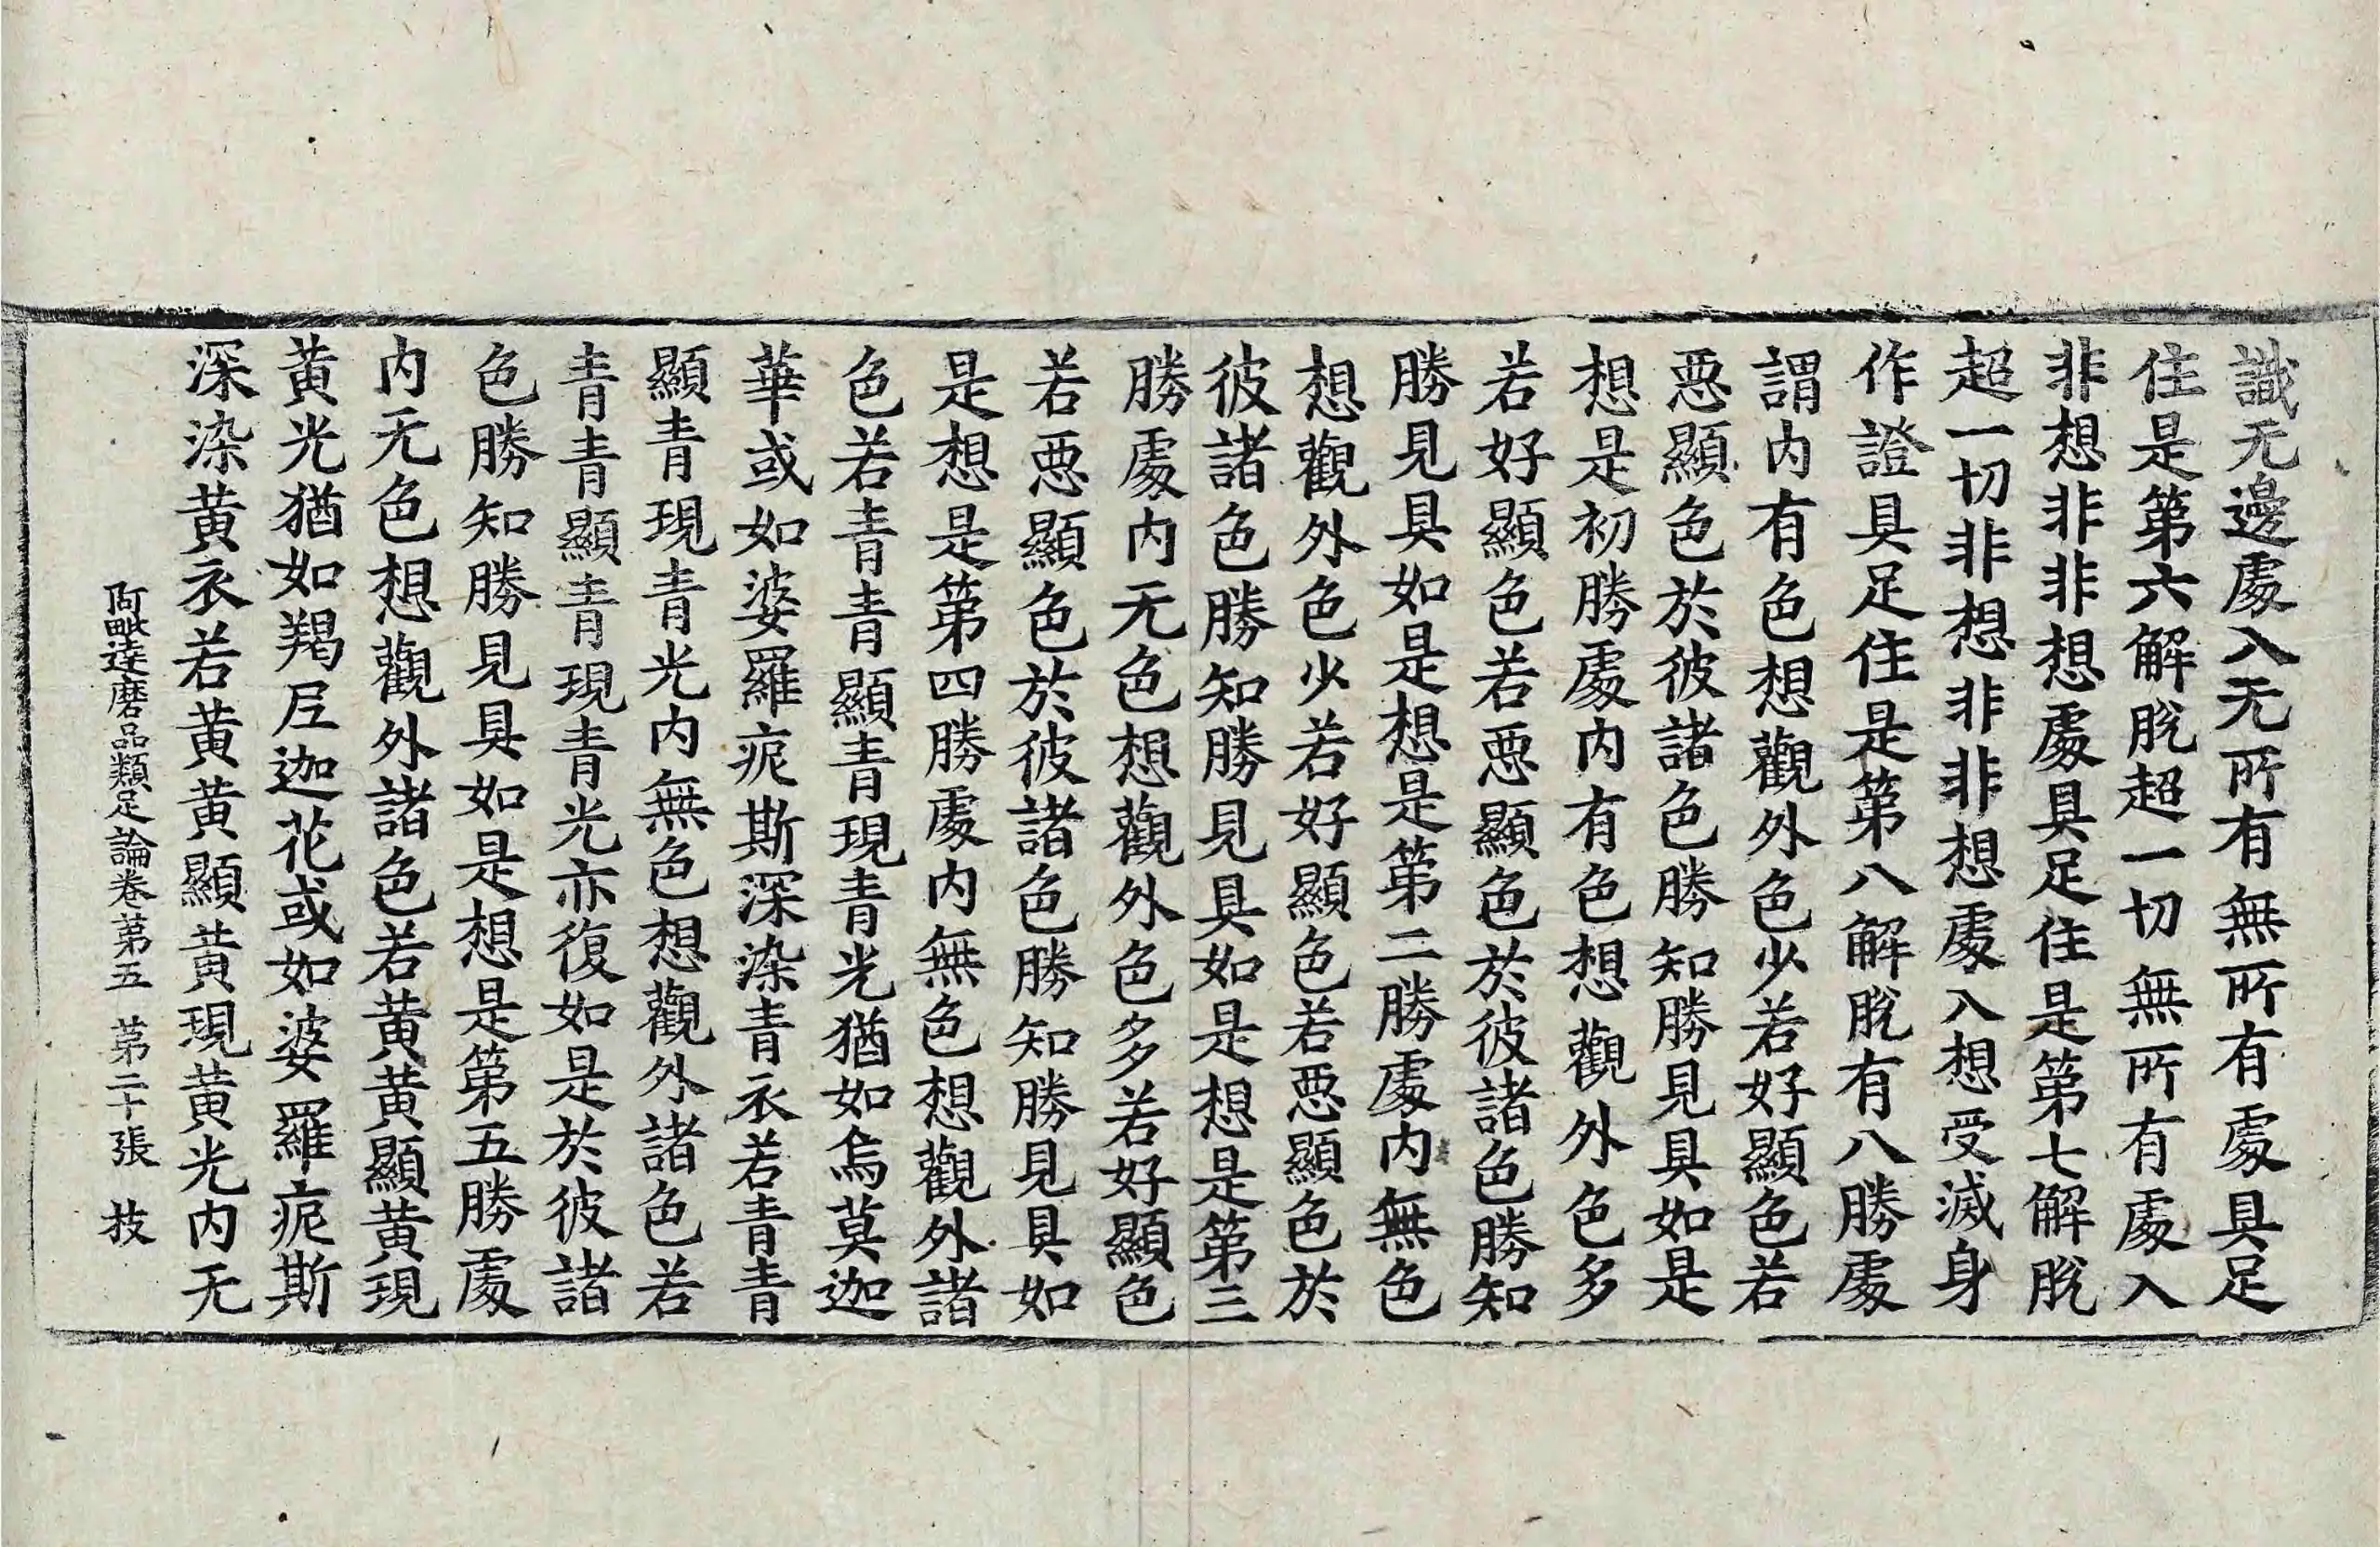 識无邊處入无所有無所有處具足
住是第六解脫超一切無所有處入
非想非非想處具足住是第七解脫
超一切非想非非想處入想受滅身
作證具足住是第八解脫有八勝處
謂内有色想觀外色少若好顯色若
惡顯色於彼諸色勝知勝見具如是
想是初勝處内有色想觀外色多
若好顯色若惡顯色於彼諸色勝知
勝見具如是想是第二勝處内無色
想觀外色少若好顯色若惡顯色於
彼諸色勝知勝見具如是想是第三
勝處内无色想觀外色多若好顯色
若惡顯色於彼諸色勝知勝見具如
是想是第四勝處内無色想觀外諸
色若青青顯青現青光猶如烏莫迦
華或如婆羅痆斯深染青衣若青青
顯青現青光内無色想觀外諸色若
青青顯青現青光亦復如是於彼諸
色勝知勝見具如是想是第五勝處
内无色想觀外諸色若黄黄顯黄現
黄光猶如羯尼迦花或如婆羅痆斯
深染黄衣若黄黄顯黄現黄光内无
阿毗達磨品類足論卷第五 第二十張 技